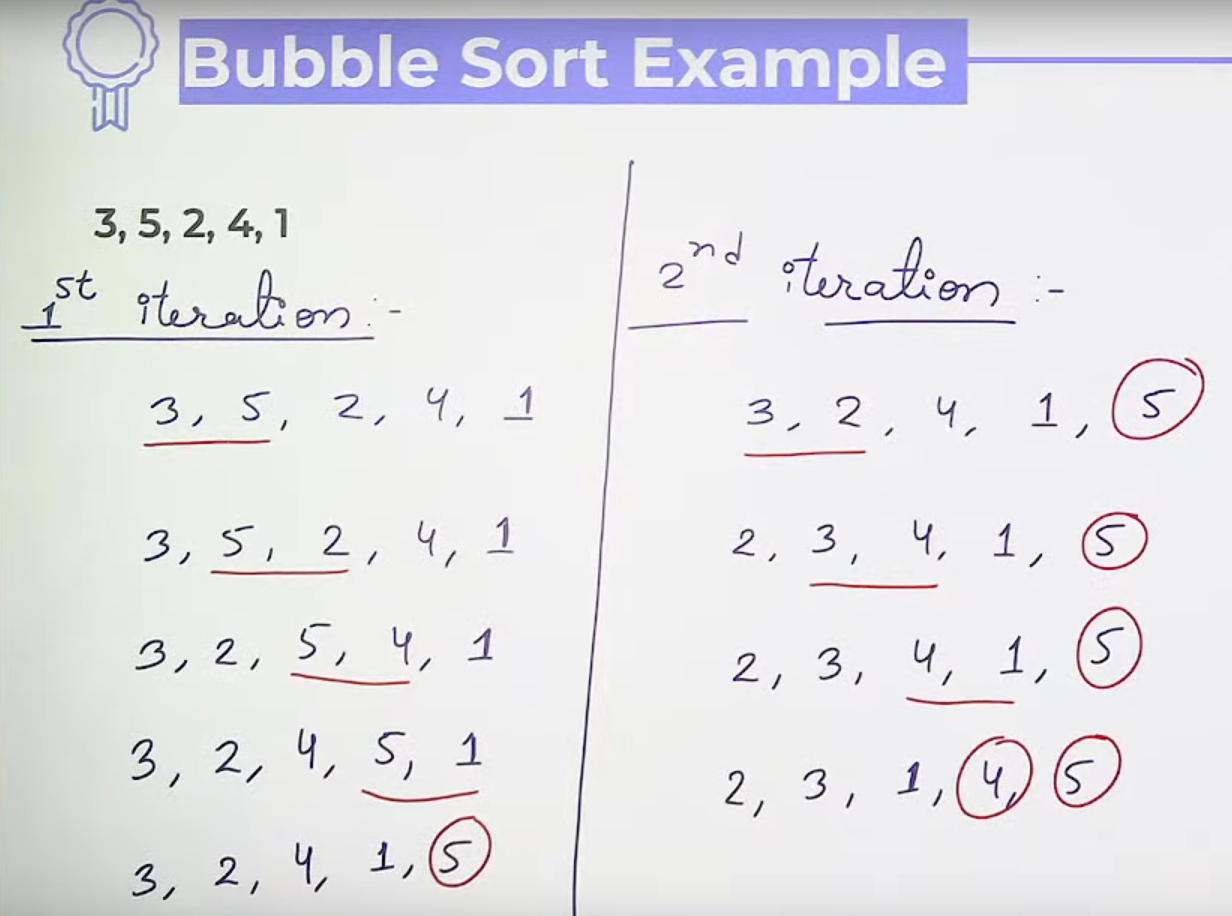 Bubble Sort Example
3, 5, 2, 4, 1
1st iteration :-
3, 5, 2, 4, 1
3, 5, 2, 4, 1
3, 2, 5, 4, 1
3, 2, 4, 5, 1
3, 2, 4, 1, 5
2nd iteration :-
3, 2, 4, 1, 5
2, 3, 4, 1, 5
2, 3, 4, 1, 5
2, 3, 1, 4, 5